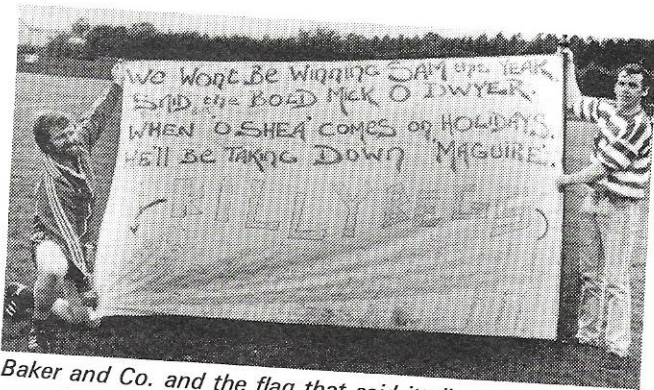 WE WONT BE WINNING SAM this YEAR
SAID the BOLD MICK O DWYER.
WHEN 'O SHEA' COMES ON HOLIDAYS.
WE'll BE TAKING DOWN 'MAGUIRE'.
KILLYBEGS
Baker and Co. and the flag that said it